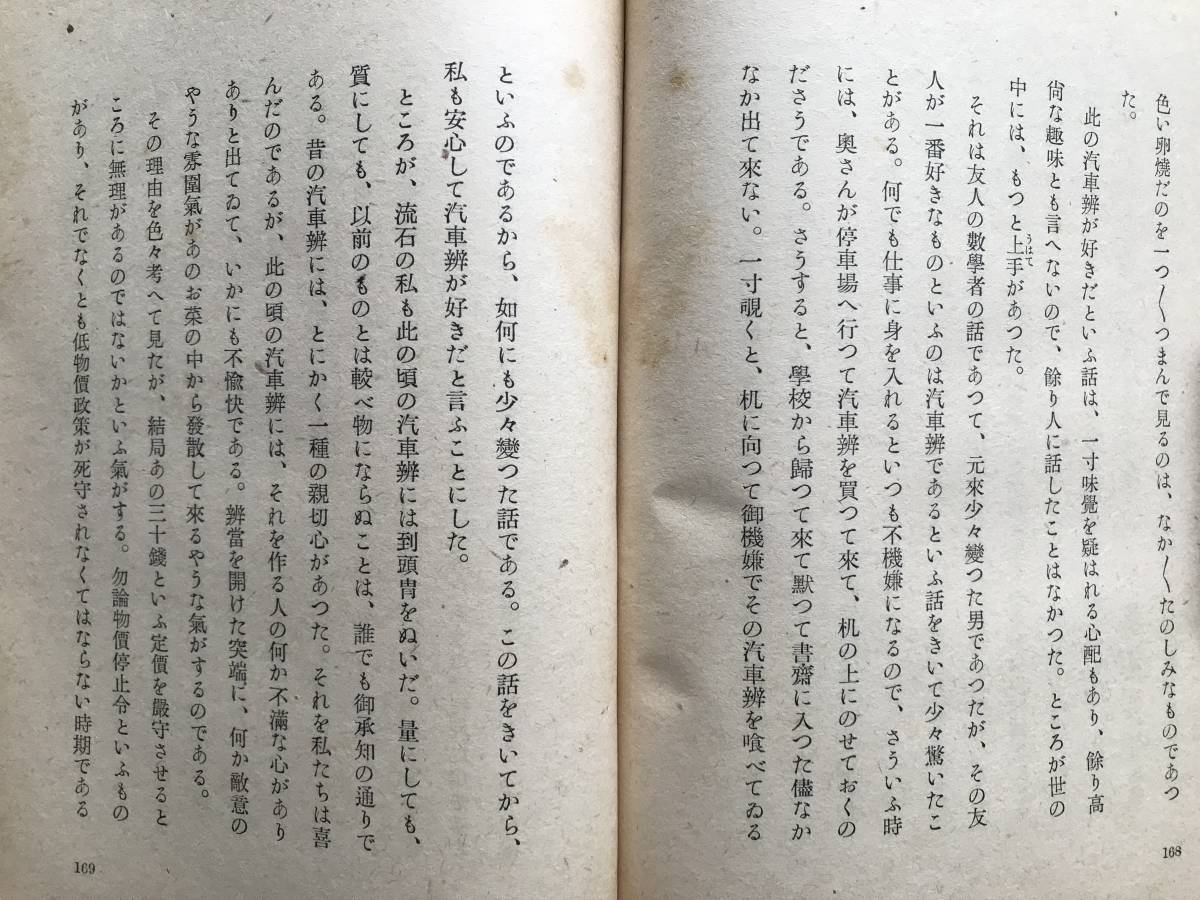 色い卵燒だのを一つ〱つまんで見るのは、なか〱たのしみなものであつ
た。
此の汽車辨が好きだといふ話は、一寸味覺を疑はれる心配もあり、餘り高
尙な趣味とも言へないので、餘り人に話したことはなかつた。ところが世の
中には、もつと上手があつた。
うはて
それは友人の數學者の話であつて、元來少々變つた男であつたが、その友
人が一番好きなものといふのは汽車辨であるといふ話をきいて少々驚いたこ
とがある。何でも仕事に身を入れるといつも不機嫌になるので、さういふ時
には、奧さんが停車場へ行つて汽車辨を買つて來て、机の上にのせておくの
ださうである。さうすると、學校から歸つて來て默つて書齋に入つた儘なか
なか出て來ない。一寸覗くと、机に向つて御機嫌でその汽車辨を喰べてゐる
168
といふのであるから、如何にも少々變つた話である。この話をきいてから、
私も安心して汽車辨が好きだと言ふことにした。
ところが、流石の私も此の頃の汽車辨には到頭冑をぬいだ。量にしても、
質にしても、以前のものとは較べ物にならぬことは、誰でも御承知の通りで
ある。昔の汽車辨には、とにかく一種の親切心があつた。それを私たちは喜
んだのであるが、此の頃の汽車辨には、それを作る人の何か不滿な心があり
ありと出てゐて、いかにも不愉快である。辨當を開けた突端に、何か敵意の
やうな雰圍氣があのお菜の中から發散して來るやうな氣がするのである。
その理由を色々考へて見たが、結局あの三十錢といふ定價を嚴守させると
ころに無理があるのではないかといふ氣がする。勿論物價停止令といふもの
があり、それでなくとも低物價政策が死守されなくてはならない時期である
169